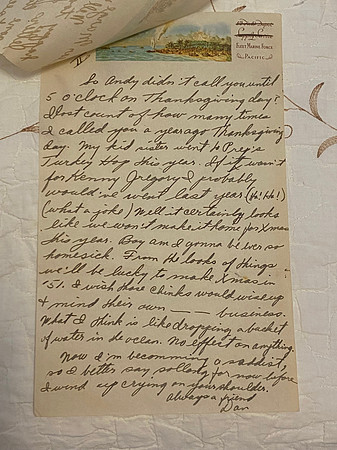 Supply Service
FLEET MARINE FORCE
PACIFIC
II
So Andy didn't call you until
5 o'clock on Thanksgiving day?
I lost count of how many times
I called you a year ago Thanksgiving
day. My kid sister went to Prep's
Turkey Hop this year. If it wasn't
for Kenny Gregory I probably
would've went last year (Ho! Ho!)
(what a joke) Well it certainly looks
like we won't make it home for Xmas
this year. Boy am I gonna be ever so
homesick. From the looks of things
we'll be lucky to make Xmas in
'51. I wish those chinks would wise up
& mind their own ——— business.
What I think is like dropping a bucket
of water in de ocean. No effect on anything.
Now I'm becomming a saddist,
so I better say so long for now before
I wind up crying on your shoulder.
always a friend
Dan